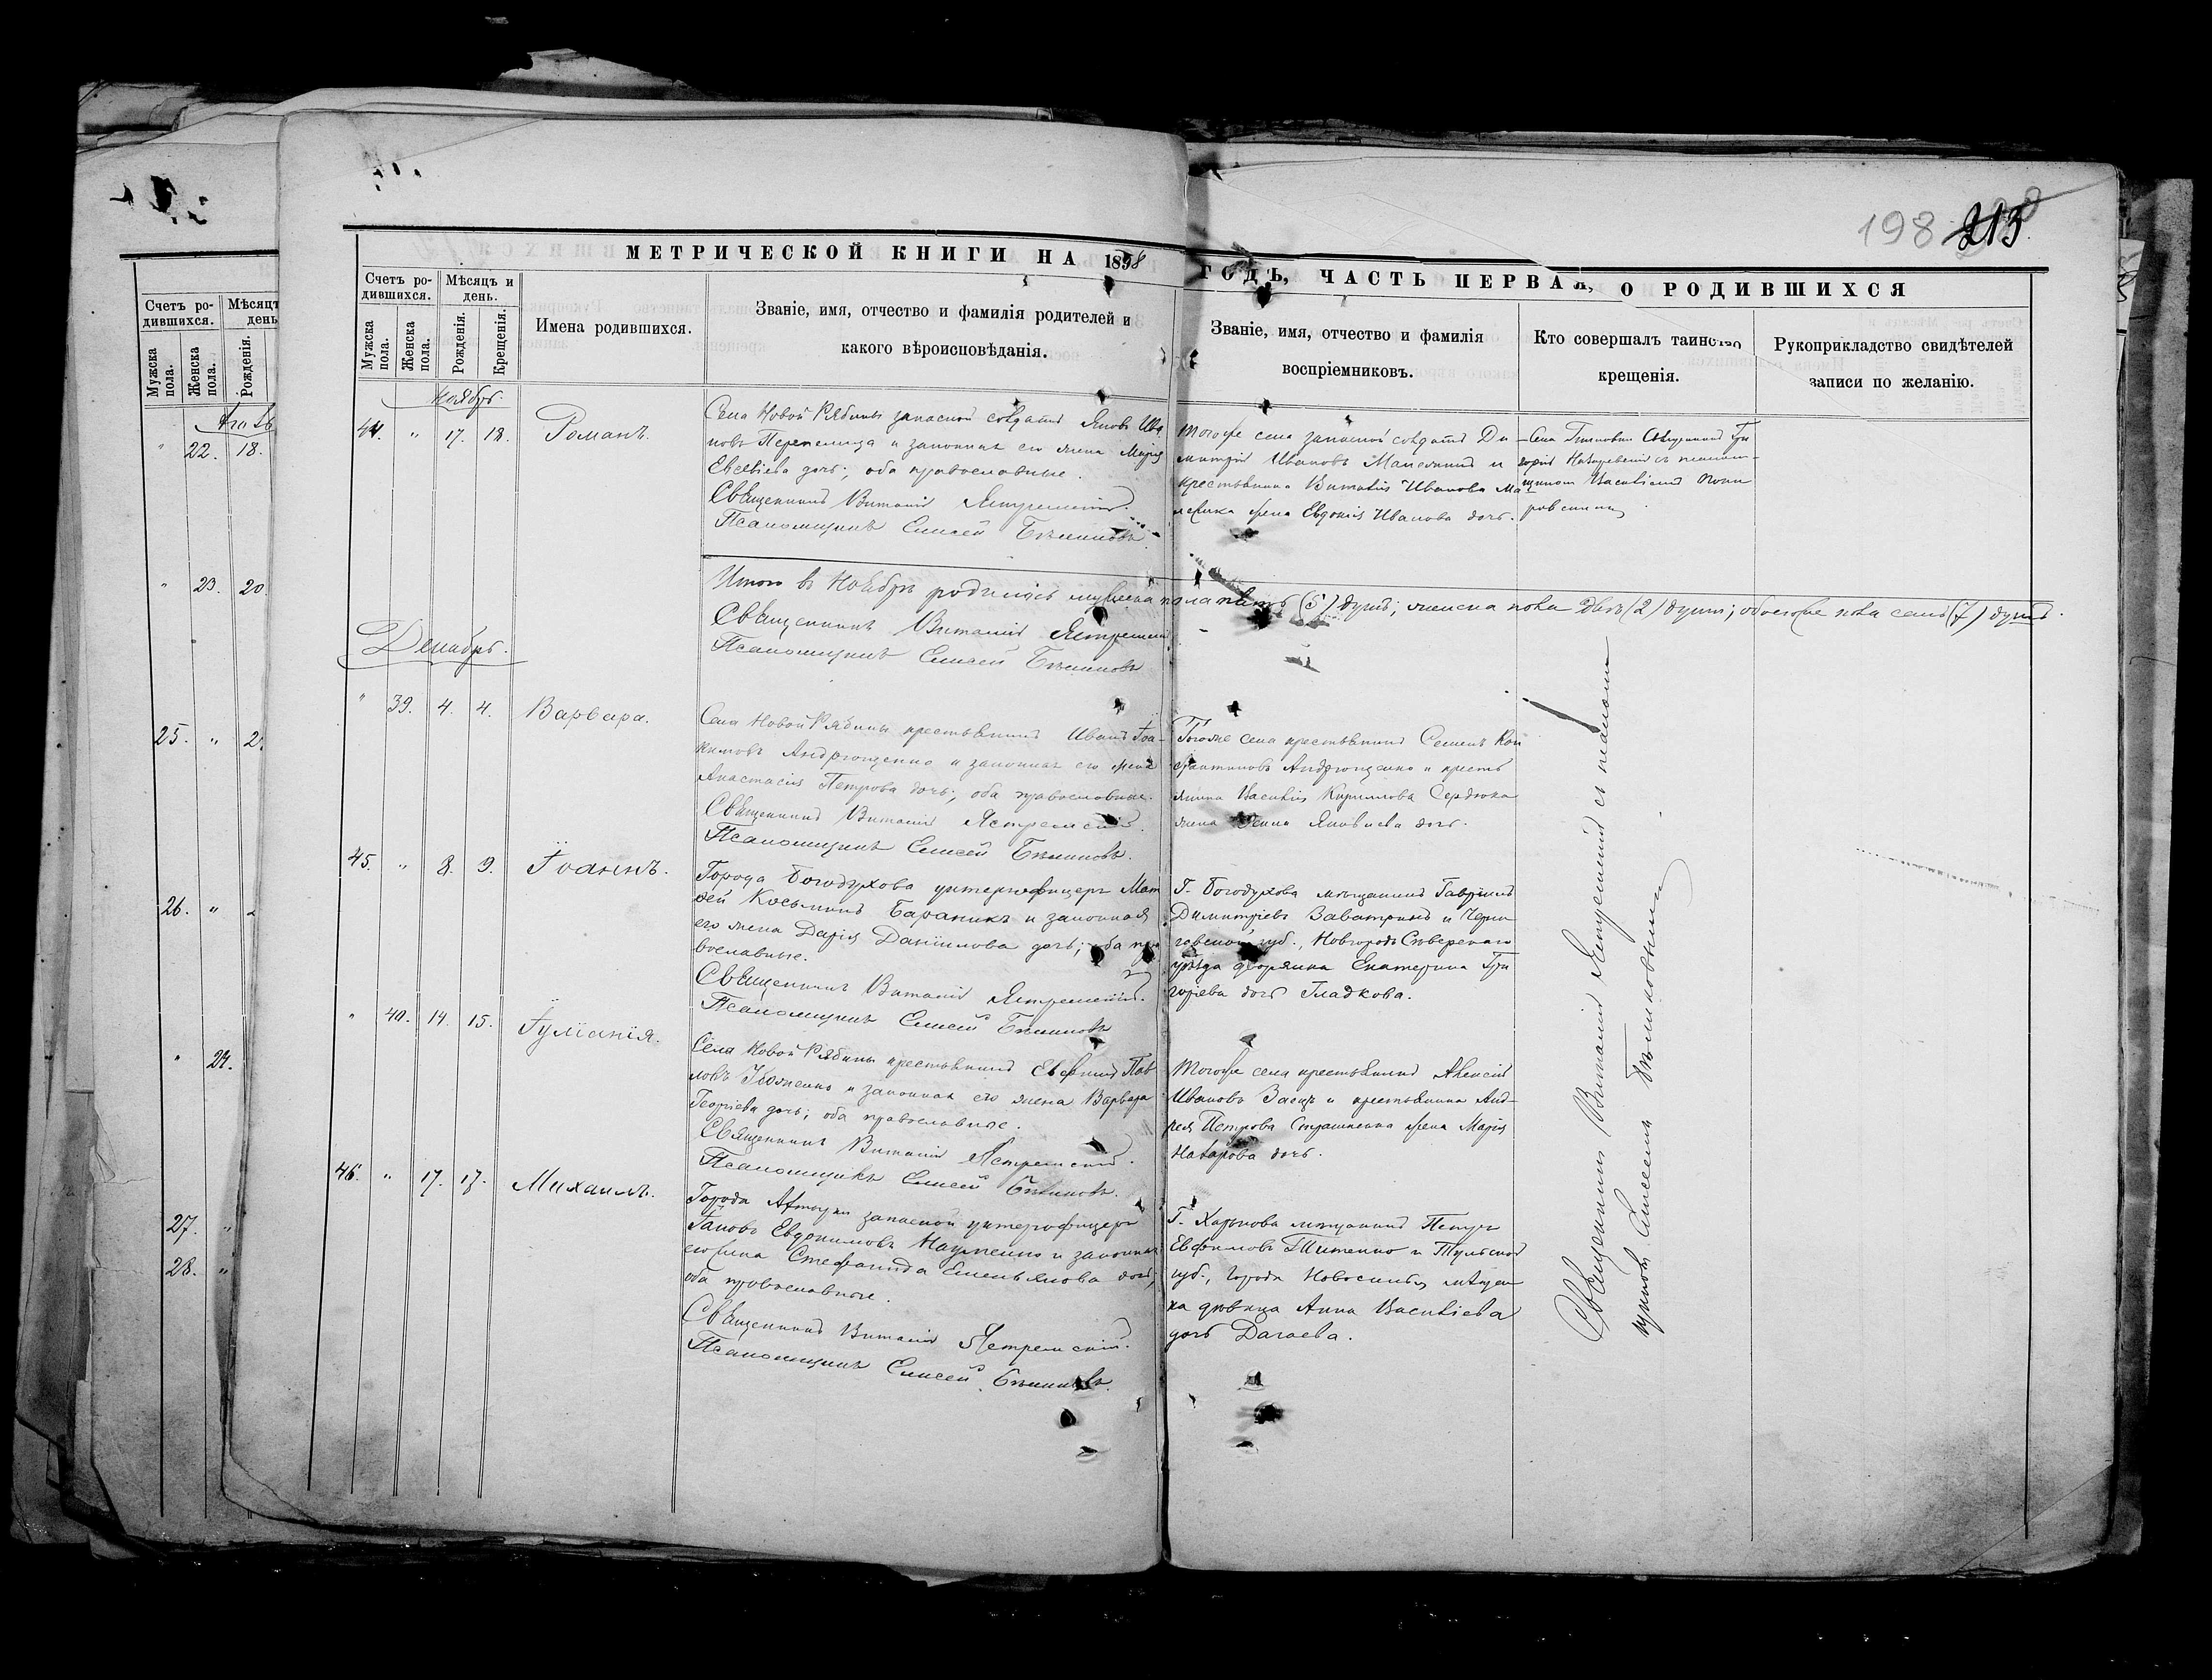 198 213
МЕТРИЧЕСКОЙ КНИГИ НА 1898 ГОДЪ, ЧАСТЬ ПЕРВАЯ, О РОДИВШИХСЯ
Счетъ ро-
дившихся.
Мѣсяцъ и
день.
Мужска
пола.
Женска
пола.
Рожденія.
Крещенія.
Имена родившихся.
Званіе, имя, отчество и фамилія родителей и
какого вѣроисповѣданія.
Званіе, имя, отчество и фамилія
воспріемниковъ.
Кто совершалъ таинство
крещенія.
Рукоприкладство свидѣтелей
записи по желанію.
Ноябрь.
44. " 17. 18. Романъ.
Села Новой Рябины запасной солдатъ Яковъ Ива
новъ Перепелица и законная его жена Марія
Евсевіева дочь; оба православные.
Священникъ Виталій Ястремскій.
Псаломщикъ Елисей Бѣликовъ.
Тогоже села запасной солдатъ Ди
митрій Ивановъ и
крестьянина Виталія Иванова Ма
жена Евдокія Иванова дочь.
Села Священникъ Гри
горій съ псалом-
щикомъ Василіемъ
Итого въ Ноябрѣ родилось мужеска пола пять (5) душъ; женска пола двѣ (2) души; обоегоже пола семь (7) душъ.
Священникъ Виталій Ястремскій
Псаломщикъ Елисей Бѣликовъ
Декабрь.
" 39. 4. 4. Варвара.
Села Новой Рябины крестьянинъ Иванъ Іоа-
кимовъ Андрющенко и законная его жена
Анастасія Петрова дочь; оба православные.
Священникъ Виталій Ястремскій.
Псаломщикъ Елисей Бѣликовъ.
Тогоже села крестьянинъ Семенъ Кон
стантиновъ Андрющенко и кресть
янина Василія Кириллова Сердюка
жена Яковлева дочь.
45. " 8. 9. Іоаннъ.
Города Богодухова унтерофицеръ Мат
ѳей Косьминъ Бараникъ и законная
его жена Дарія Даніилова дочь; оба пра
вославные.
Священникъ Виталій Ястремскій.
Псаломщикъ Елисей Бѣликовъ
Г. Богодухова мѣщанинъ Гавріилъ
Димитріевъ и Черни
говской губ., Новгородъ Сѣверскаго
уѣзда дворянка Екатерина Гри
горіева дочь Гладкова.
" 40. 14. 15. Іуліанія.
Села Новой Рябины крестьянинъ Евфимій Пав
ловъ и законная его жена Варвара
Георгіева дочь; оба православные.
Священникъ Виталій Ястремскій.
Псаломщикъ Елисей Бѣликовъ.
Тогоже села крестьянинъ Алексій
Ивановъ Заецъ и крестьянина Анд-
рея Петрова жена Марія
Назарова дочь.
46. " 17. 17. Михаилъ.
Города Ахтырки запасной унтерофицеръ
Іаковъ Евдокимовъ Науменко и законная
его жена Стефанида Емельянова дочь;
оба православные.
Священникъ Виталій Ястремскій.
Псаломщикъ Елисей Бѣликовъ.
Г. Харькова мѣщанинъ Петръ
Евфимовъ Титенко и Тульской
губ., города Новосиля, мѣщан
ка дѣвица Анна Василіева
дочь Дагаева.
Священникъ Виталій Ястремскій съ псалом
щикомъ Елисеемъ Бѣликовымъ.
Счетъ ро-
дившихся.
Мужска
пола.
Женска
пола.
Рожденія.
" 22. 18.
" 23. 20.
25. "
26. "
" 24.
27. "
28. "